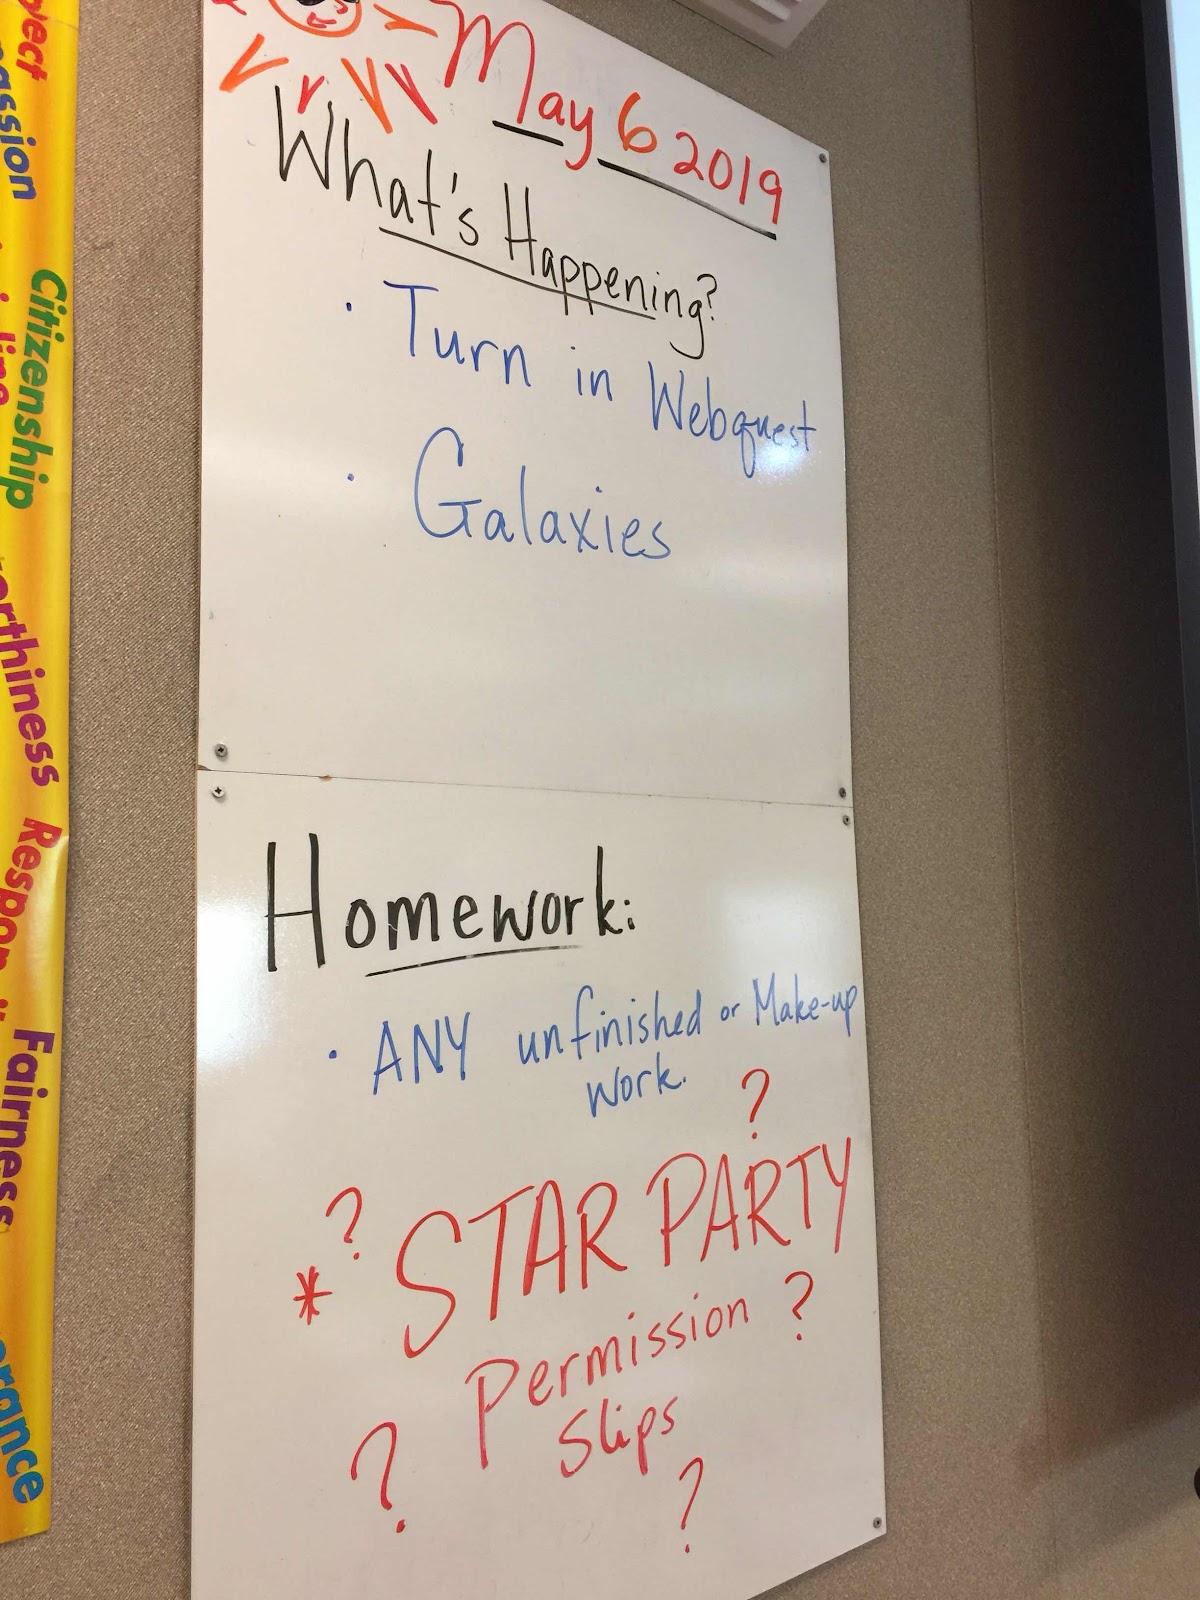 May 6 2019
What's Happening?
· Turn in Webquest
· Galaxies
Homework:
· ANY unfinished or Make-up
work.
?
?
* STAR PARTY
Permission ?
Slips
?
?
Citizenship
Fairness